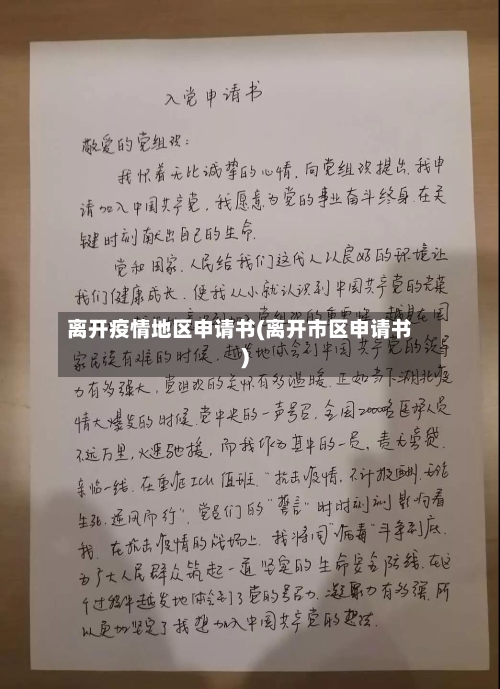 入党申请书
敬爱的党组织:
我怀着无比诚挚的心情,向党组织提出我申
请加入中国共产党,我愿意为党的事业奋斗终身.在关
键时刻献出自己的生命.
党和国家、人民给我们这代人以良好的环境让
我们健康成长,使我从小就认识到中国共产党的光荣
离开疫情地区申请书(离开市区申请书
)
家民族有难的时候,越发地体会到中国共产党的领导
力有多强大,党组织的关怀有多温暖.正如当下湖北疫
情大爆发的时候.党中央的一声号召.全国20000名医护人员
不远万里,火速驰援,而我作为其中的一员,责无旁贷.
亲临一线.在重症ICU值班."抗击疫情,不计报酬,无论
生死.逆风而行".党员们的"誓言"时时刻刻影响着
我.在抗击疫情的战场上.我将同"病毒"斗争到底.
为广大人民群众筑起一道坚定的生命安全防线.在这
个过程中越发地体会到了党的号召力、凝聚力有多强.所
以更加坚定了我想加入中国共产党的想法.